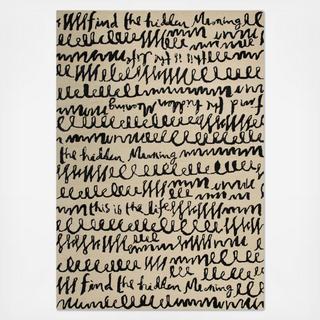 find the hidden Meaning
this is the life
find the hidden Meaning
the hidden Meaning
this is the life
find the hidden Meaning